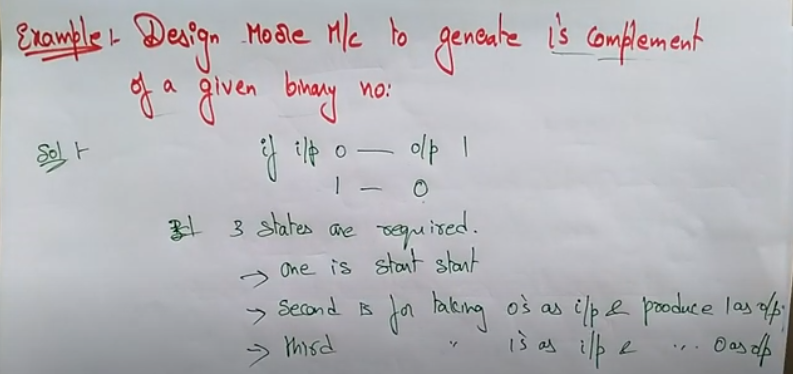 Example:- Design Moore M/c to geneate 1's complement
of a given binary no:
Sol :- if i/p 0 — o/p 1
1 — 0
3 states are required.
→ one is start start
→ Second is for taking 0's as i/p & produce 1 as o/p.
→ third " 1's as i/p & ... 0 as o/p